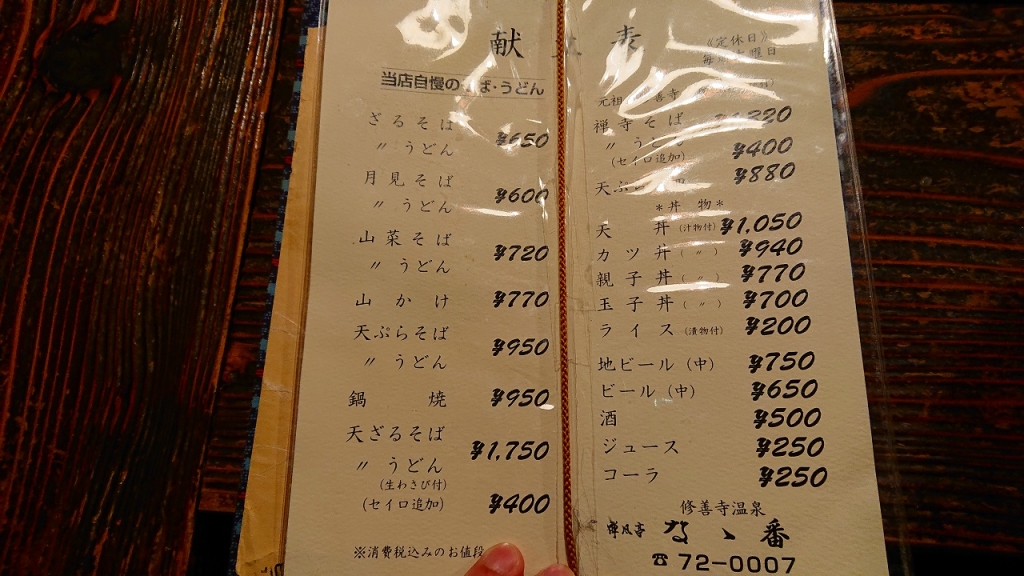 献 立 表
当店自慢のそば・うどん
ざるそば
〃 うどん ¥650
月見そば
〃 うどん ¥600
山菜そば
〃 うどん ¥720
山かけ ¥770
天ぷらそば
〃 うどん ¥950
鍋焼 ¥950
天ざるそば
〃 うどん ¥1,750
(生わさび付)
(セイロ追加) ¥400
※消費税込みのお値段
《定休日》
毎 曜日
元祖 善寺
禅寺そば 220
〃 うどん
(セイロ追加) ¥400
天ぷら ¥880
*丼 物*
天丼(汁物付) ¥1,050
カツ丼(〃) ¥940
親子丼(〃) ¥770
玉子丼(〃) ¥700
ライス(漬物付) ¥200
地ビール(中) ¥750
ビール(中) ¥650
酒 ¥500
ジュース ¥250
コーラ ¥250
修善寺温泉
禅風亭 なゝ番
☎72-0007